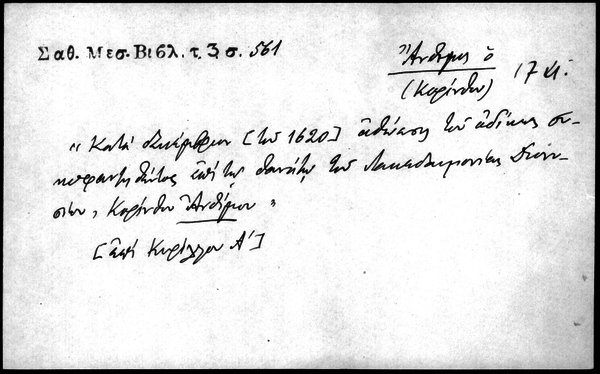 Σαθ. Μεσ. Βιβλ. τ. 3, σ. 561
Ἄνθιμος ὁ
(Κορίνθου) 17 αἰ.
"Κατὰ Δεκέμβριον [τοῦ 1620] ἀθώωσις τοῦ ἀδίκως συ-
κοφαντηθέντος ἐπὶ τῷ θανάτῳ τοῦ Λακεδαιμονίας Διονυ-
σίου, Κορίνθου Ἀνθίμου"
[ἐπὶ Κυρίλλου Α']